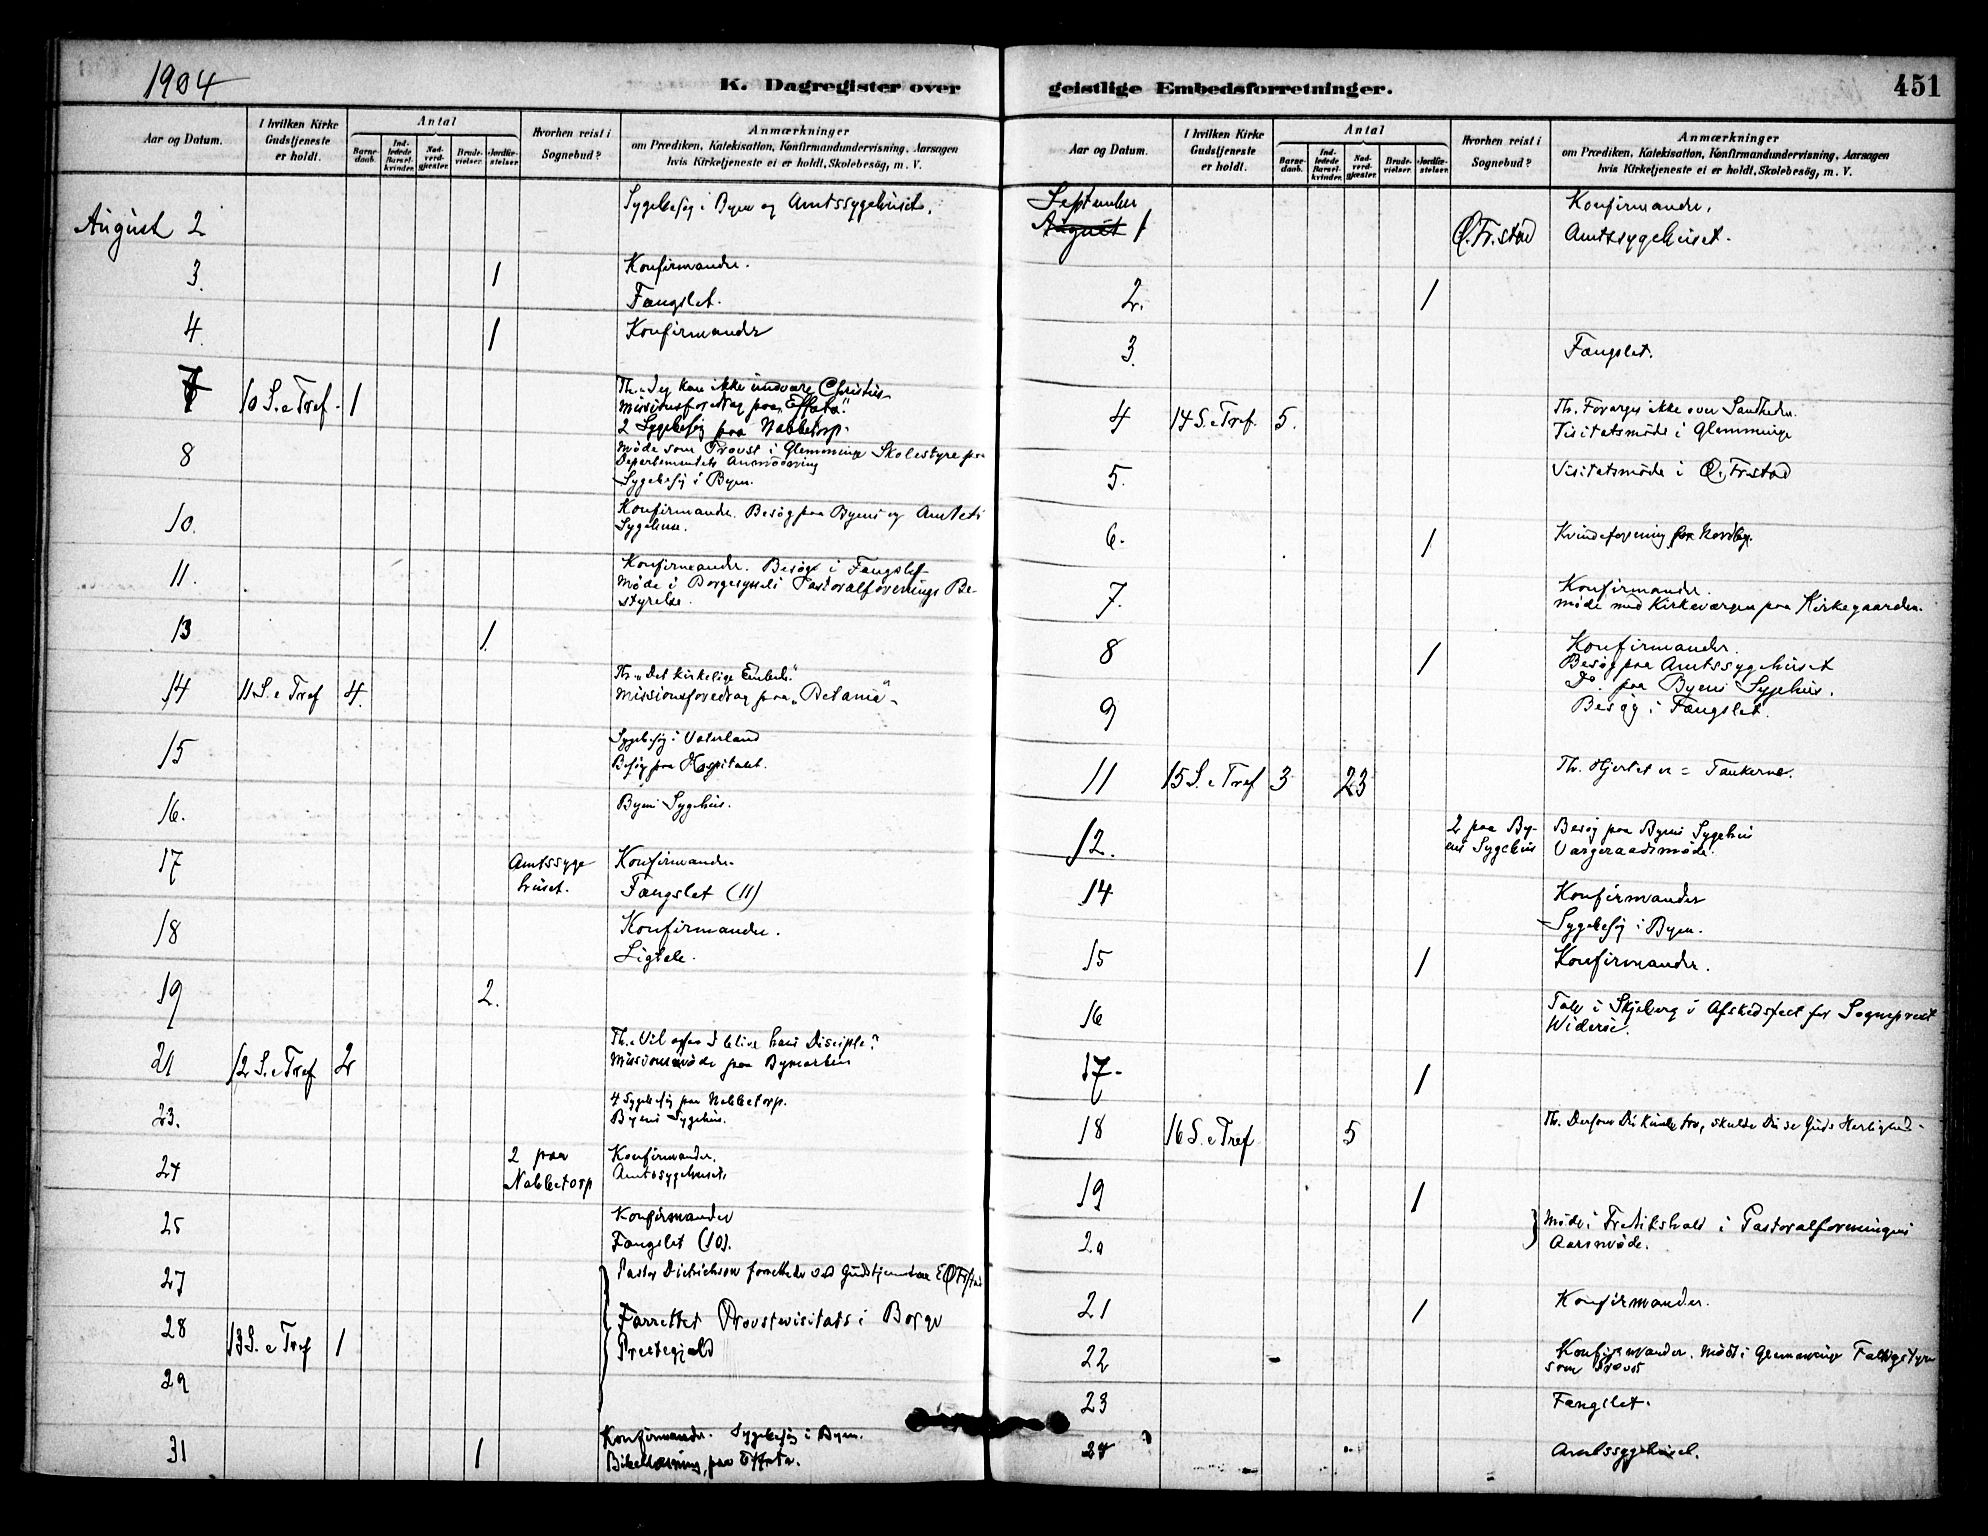 1904
K. Dagregister over
Aar og Datum.
I hvilken Kirke Gudstjeneste er holdt.
Antal
Barne-daab.
Ind-ledede Barsel-kvinder.
Nad-verd-gjester.
Brude-vielser.
Jordfæ-stelser.
Hvorhen reist i Sognebud?
Anmærkninger
om Prædiken, Katekisation, Konfirmandundervisning, Aarsagen
hvis Kirketjeneste ei er holdt, Skolebesøg, m. V.
August 2 Sygebesøg i Byen og Amtssygehuset.
3. 1 Konfirmander.
Fængslet.
4. 1 Konfirmander
7 10 S. e Tref. 1 Th. "Jeg kan ikke undvære Christus
Missionsforedrag paa "Effata".
2 Sygebesøg paa Nabbetorp.
8 Møde som Provst i Glemminge Skolestyre paa
Departementets Anmodning
Sygebesøg i Byen.
10. Konfirmander. Besøg paa Byens og Amtets
Sygehuse.
11. Konfirmander. Besøg i Fængslet
Møde i Borgesyssels Pastoralforenings Be-
styrelse.
13 1.
14 11 S. e Tref 4. Th. "Det kirkelige Embede".
Missionsforedrag paa "Betania"
15 Sygebesøg i Vaterland
Besøg paa Hospitalet.
16. Byens Sygehus.
17 Amtssyge
huset. Konfirmander
Fængslet (11)
18 Konfirmander.
Ligtale.
19 2.
21 12 S. e Tref 2 Th. Vil ogsaa I blive hans Disciple?
Missionsmøde paa Bymarken
23. 4 Sygebesøg paa Nabbetorp.
Byens Sygehus.
24 2 paa
Nabbetorp Konfirmander.
Amtssygehuset.
25 Konfirmander
Fængslet (10).
27 Pastor Dietrichson forrettede ved Gudstjenesten
28 13 S. e Tref 1 Forrettet Provstevisitats i Borge
Prestegjeld
29
31 1 Konfirmander. Sygebesøg i Byen.
Bibellæsning paa Effata.
geistlige Embedsforretninger.
451
Aar og Datum.
I hvilken Kirke Gudstjeneste er holdt.
Antal
Barne-daab.
Ind-ledede Barsel-kvinder.
Nad-verd-gjester.
Brude-vielser.
Jordfæ-stelser.
Hvorhen reist i Sognebud?
Anmærkninger
om Prædiken, Katekisation, Konfirmandundervisning, Aarsagen
hvis Kirketjeneste ei er holdt, Skolebesøg, m. V.
September Konfirmander.
August 1 Ø. Fr.stad Amtssygehuset.
2. 1
3. Fængslet.
4 14 S. e Tref. 5. Th. Forarges ikke over Sandheden.
Visitatsmøde i Glemminge
5. Visitatsmøde i Ø. Fr.stad
6. 1 Kvindeforening paa Nordby.
7. Konfirmander.
Møde med Kirkeværgen paa Kirkegaarden.
8 1 Konfirmander.
Besøg paa Amtssygehuset
Do. paa Byens Sygehus.
9 Besøg i Fængslet.
11 15 S. e Tref 3 23 Th. Hjertet er = Tankerne.
12. 2 paa By-
ens Sygehus Besøg paa Byens Sygehus
Værgeraadsmøde.
14 Konfirmander
Sygebesøg i Byen.
15 1 Konfirmander.
16 Tale i Skjeberg i Afskedsfest for Sogneprest
Widerøe.
17. 1
18 16 S. e Tref. 5 Th. Dersom Du kunde tro, skulde Du se Guds Herlighed
19 1
20 Møde i Fredrikshald i Pastoralforeningens
Aarsmøde.
21 1 Konfirmander.
22 Konfirmander. Møde i Glemminge
som Provst
23 Fængslet.
24 Amtssygehuset.